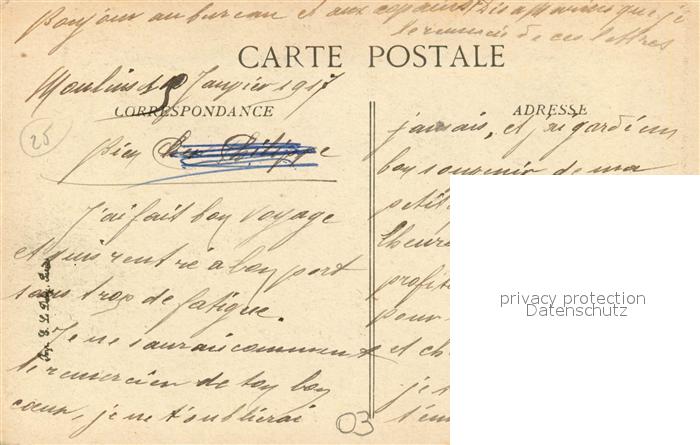 Bonjour au bureau et aux copains. Dis a que je
te remercie de ces lettres
CARTE POSTALE
Moulins le Janvier 1917
CORRESPONDANCE
ADRESSE
25
bien
J'ai fait bon voyage
et suis rentré a bon port
sans trop de fatigue.
Je ne saurais comment
te remercier de ton bon
coeur, je ne t'oublierai
jamais, et j'ai gardé un
bon souvenir de ma
petit
l'heure
profite
pour
et ch
je t
t'em
03
privacy protection
Datenschutz